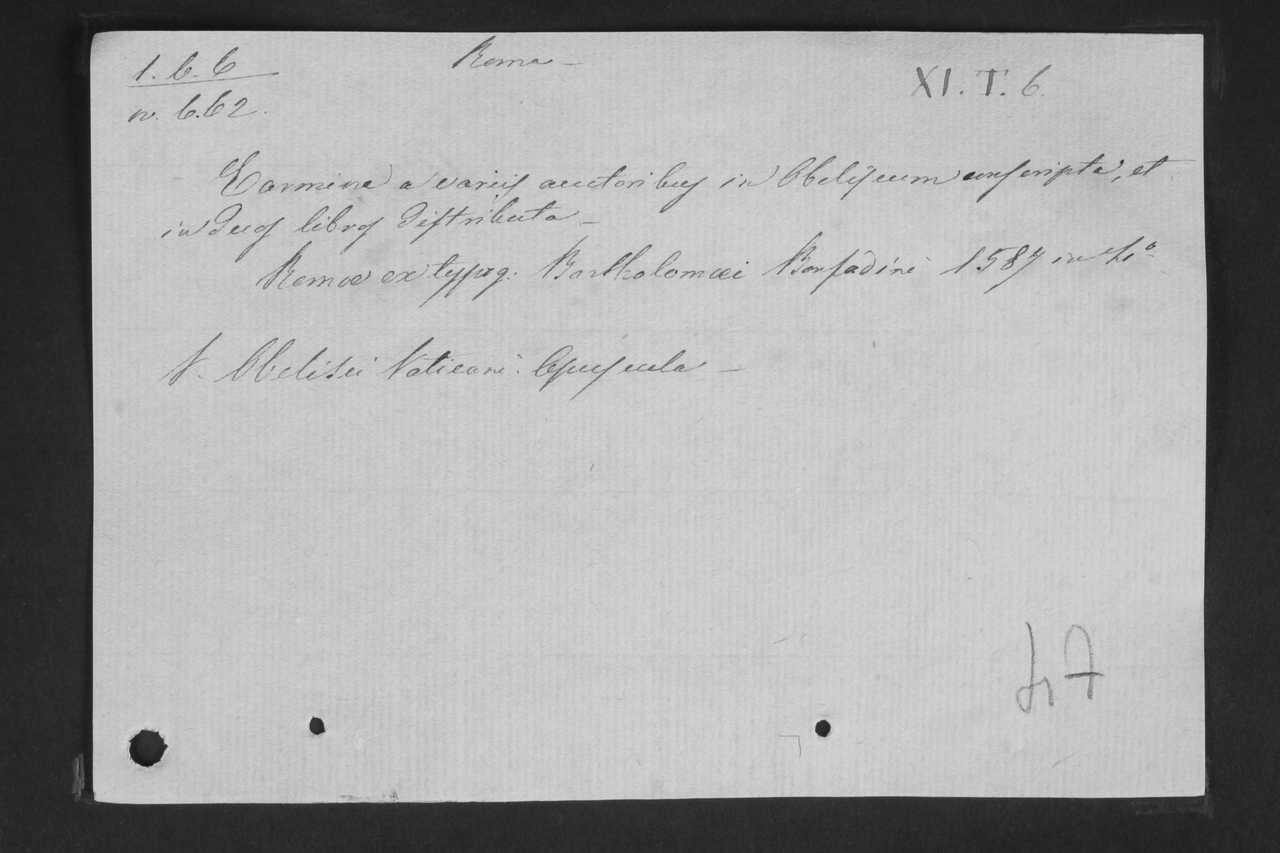 1. b. 6 Roma – XI. T. 6.
n. 6.62.
Carmina a variis auctoribus in Obeliscum conscripta, et
in duos libros distributa –
Romæ ex typog. Bartholomæi Bonfadini 1587 in 4.°
V. Obelisci Vaticani Opuscula –